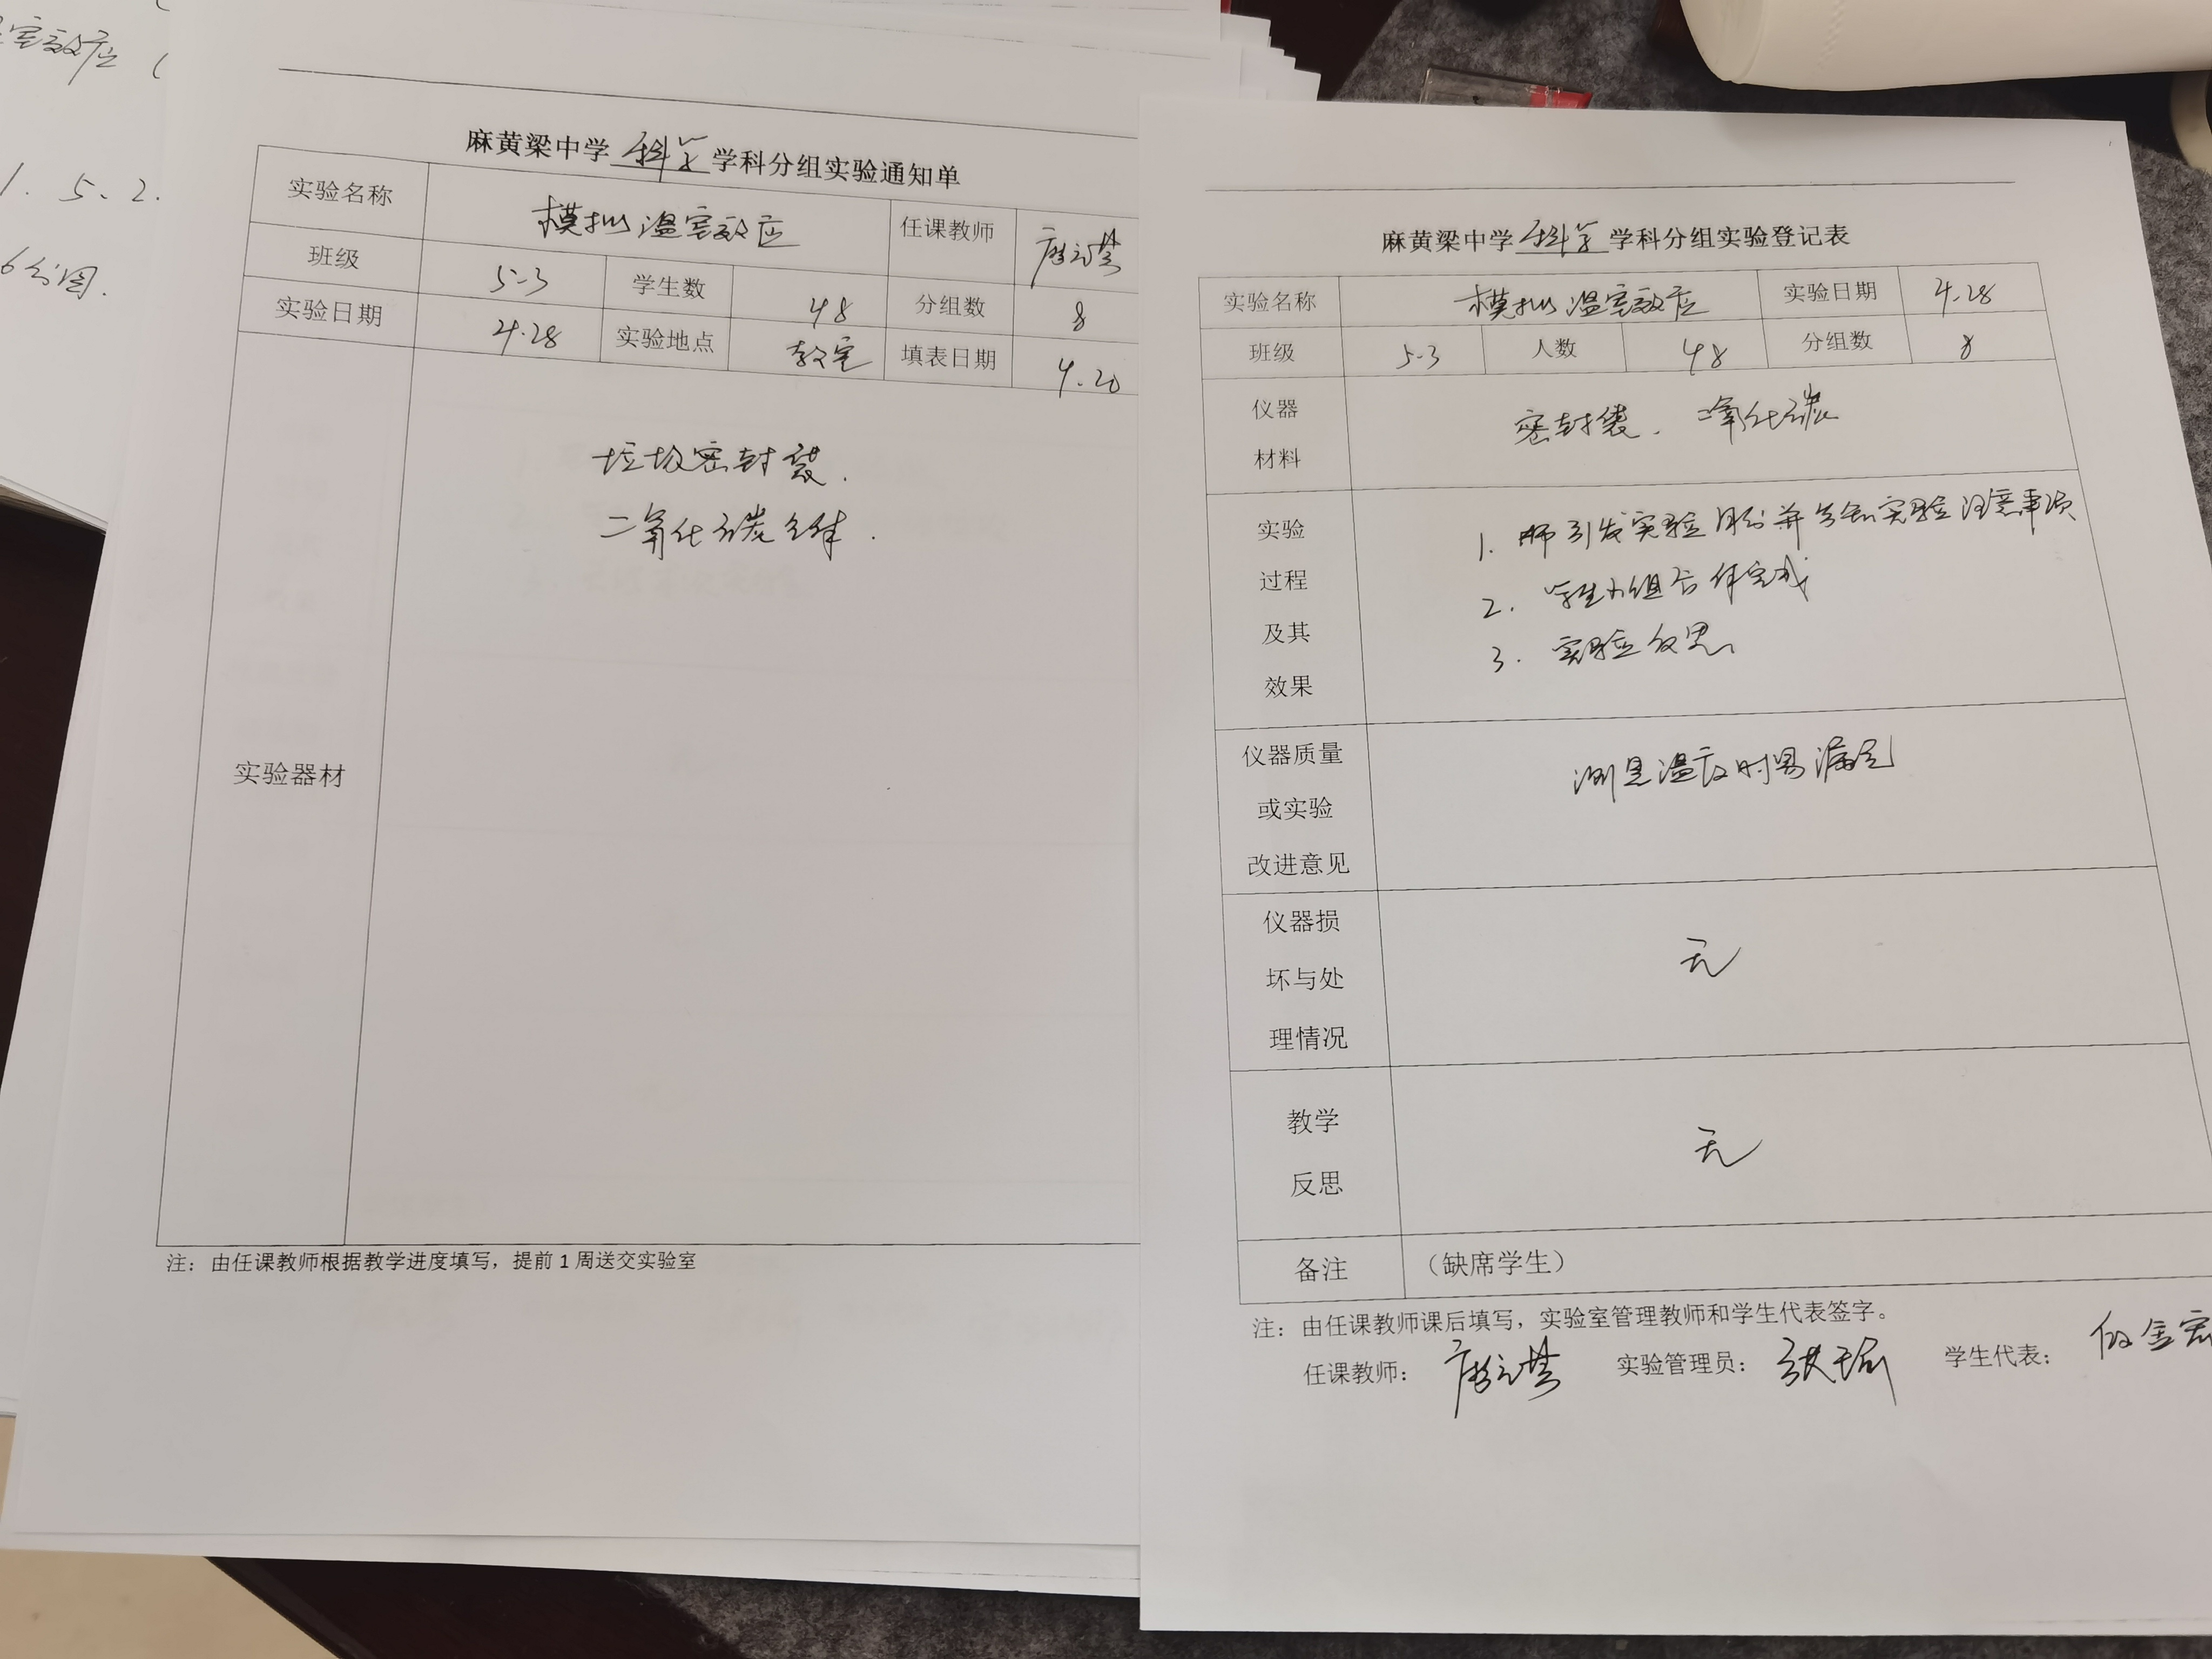 室效应（
1. 5-2.
6分团.
麻黄梁中学 科学 学科分组实验通知单
实验名称 模拟温室效应 任课教师
班级 5-3 学生数 48 分组数 8
实验日期 4.28 实验地点 教室 填表日期 4.20
实验器材
垃圾密封袋.
二氧化碳气体.
注：由任课教师根据教学进度填写，提前 1 周送交实验室
麻黄梁中学 科学 学科分组实验登记表
实验名称 模拟温室效应 实验日期 4.28
班级 5-3 人数 48 分组数 8
仪器
材料
密封袋、二氧化碳
实验
过程
及其
效果
1. 师引发实验 并告知实验注意事项
2. 学生小组合作完成
3. 实验反思.
仪器质量
或实验
改进意见
测量温度时易漏气
仪器损
坏与处
理情况
无
教学
反思
无
备注 （缺席学生）
注：由任课教师课后填写，实验室管理教师和学生代表签字。
任课教师： 实验管理员：张瑜 学生代表：